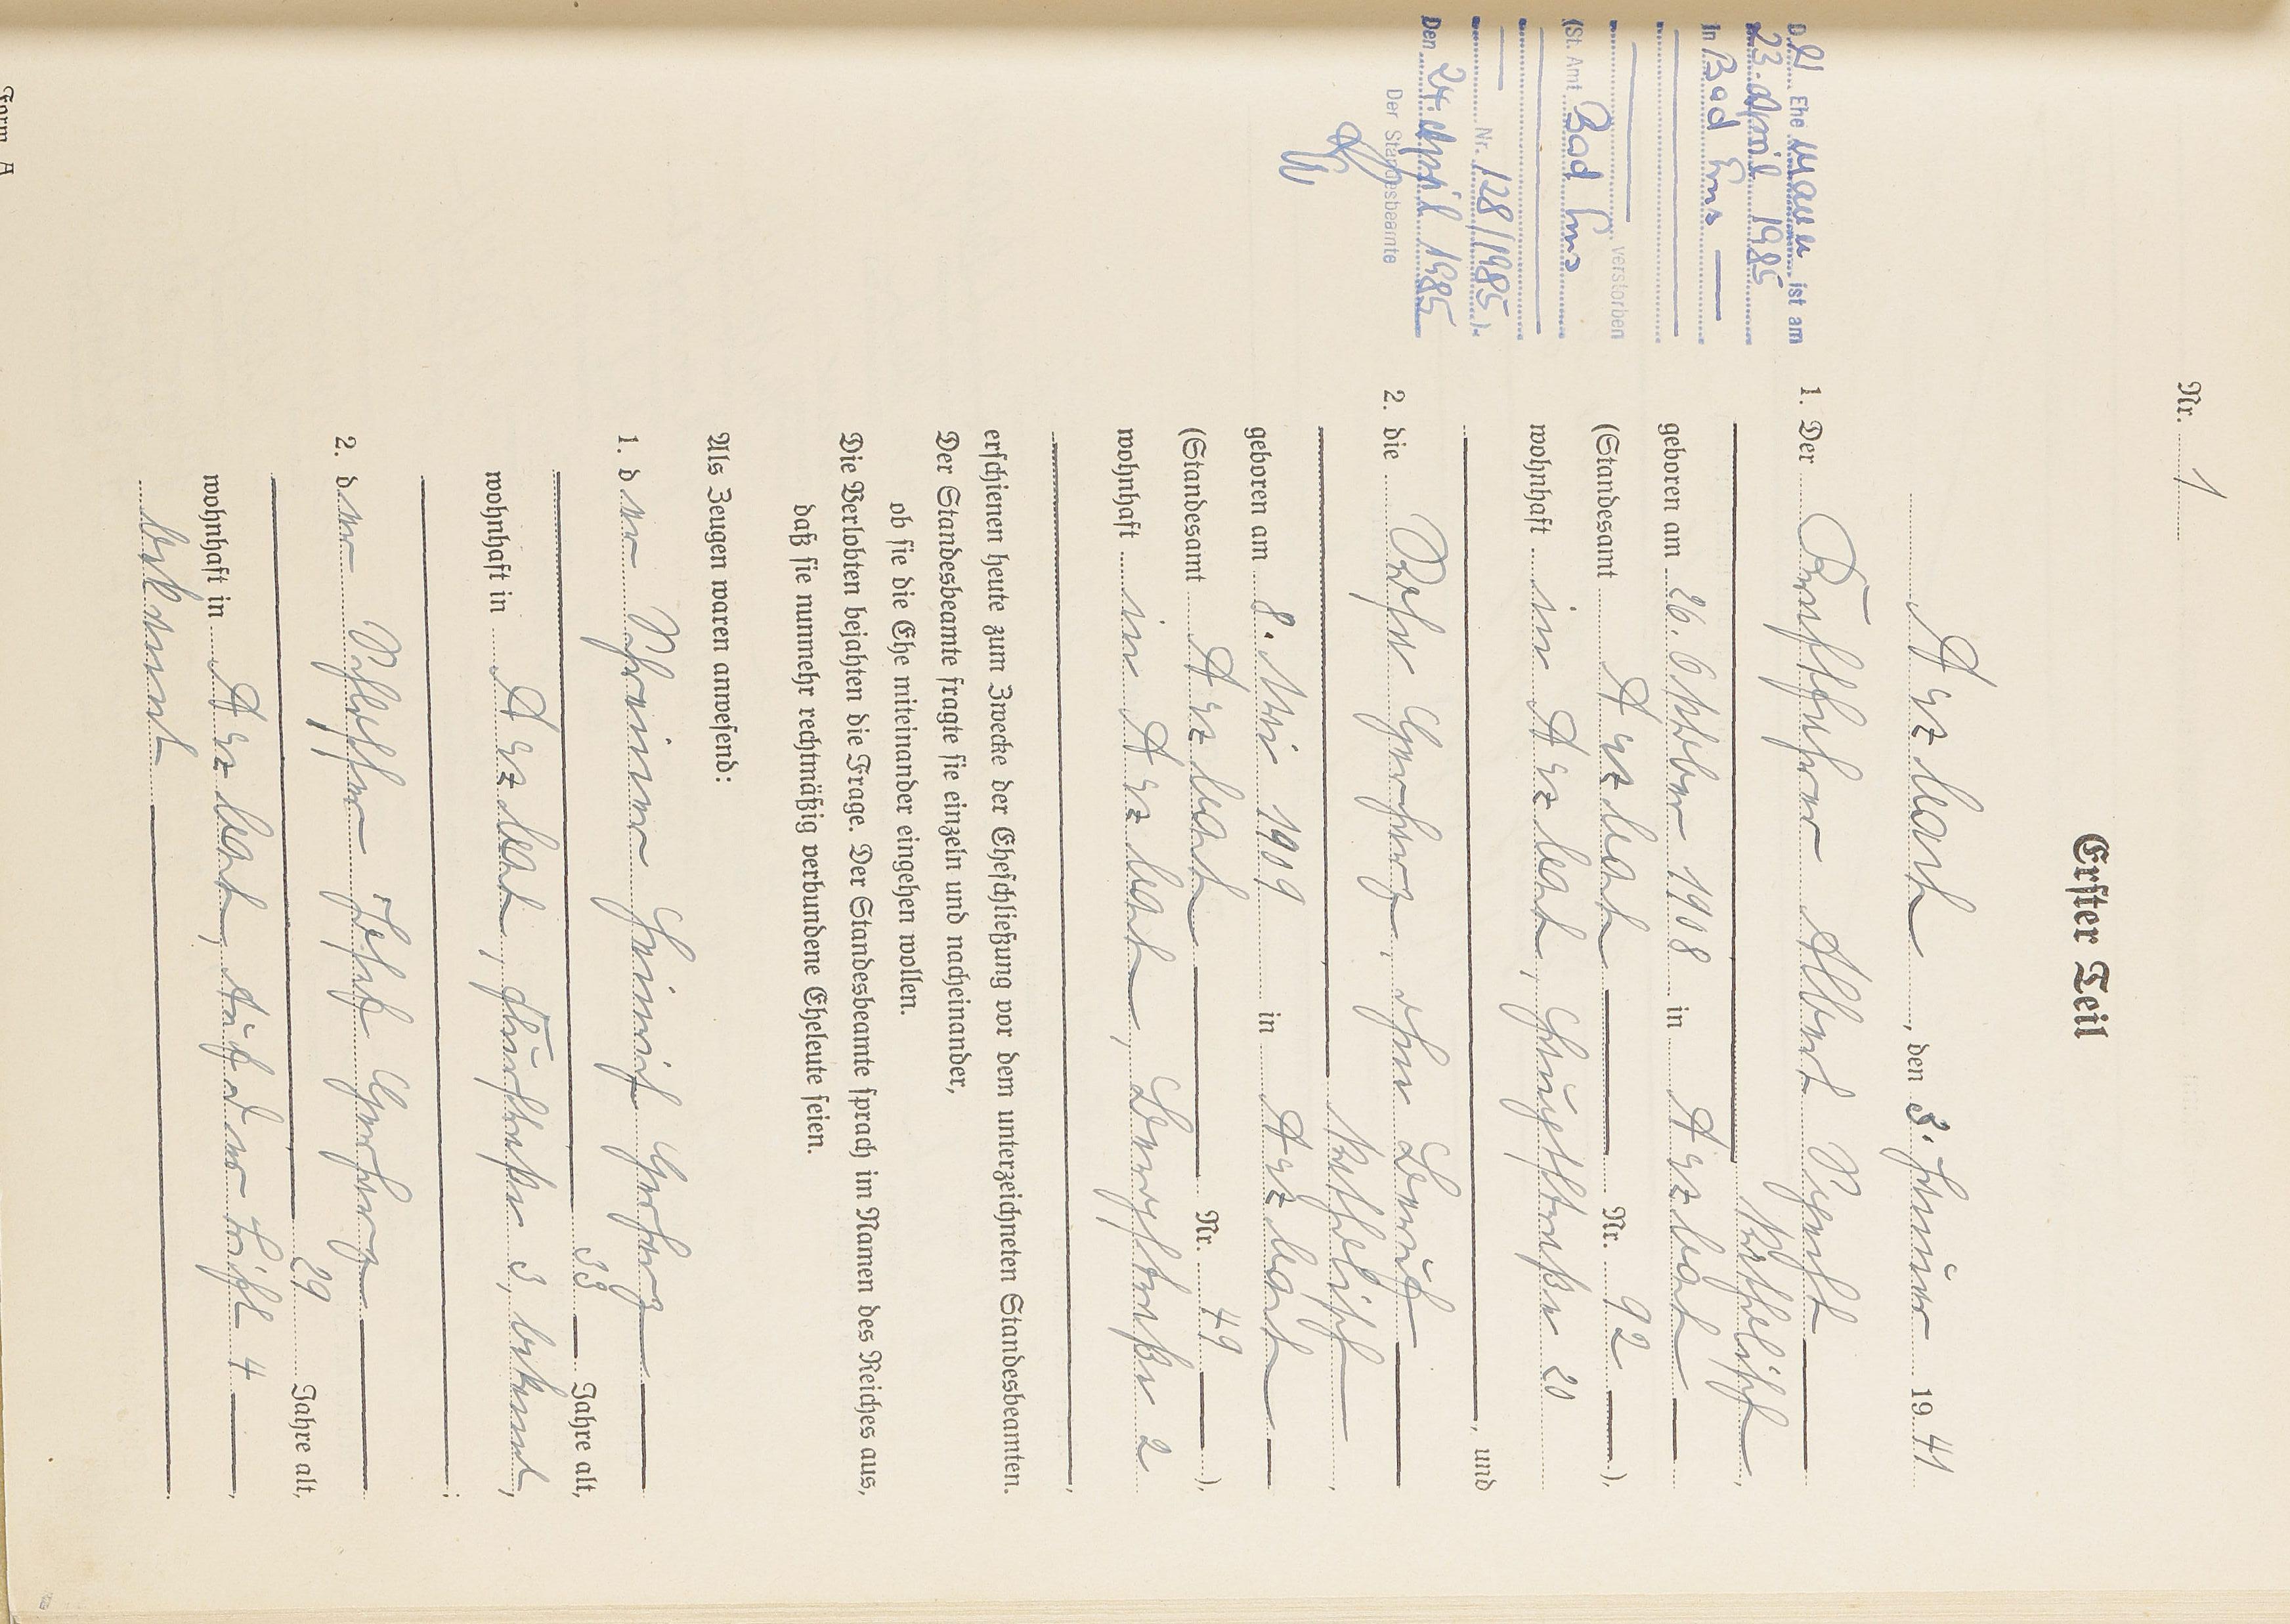 Nr. 1
Erster Teil
Arzbach, den 3. Januar 1941
1. Der Buchführer Albert
katholisch,
geboren am 26. Oktober 1908 in Arzbach
(Standesamt Arzbach Nr. 92),
wohnhaft in Arzbach, Hauptstraße 20
, und
2. die Gerharz, ohne Beruf
katholisch,
geboren am 8. Mai 1909 in Arzbach
(Standesamt Arzbach Nr. 49),
wohnhaft in Arzbach, Bergstraße 2
,
erschienen heute zum Zwecke der Eheschließung vor dem unterzeichneten Standesbeamten.
Der Standesbeamte fragte sie einzeln und nacheinander,
ob sie die Ehe miteinander eingehen wollen.
Die Verlobten bejahten die Frage. Der Standesbeamte sprach im Namen des Reiches aus,
daß sie nunmehr rechtmäßig verbundene Eheleute seien.
Als Zeugen waren anwesend:
1. der Schreiner Heinrich Gerharz
33 Jahre alt,
wohnhaft in Arzbach, 3, bekannt,
;
2. der Schlosser Josef Gerharz
29 Jahre alt,
wohnhaft in Arzbach, Auf der 4,
bekannt.
Der Ehemann ist am
23. April 1985
in Bad Ems
verstorben
(St. Amt Bad Ems
Nr. 128/1985).
Den 24. April 1985
Der Standesbeamte
Form. A